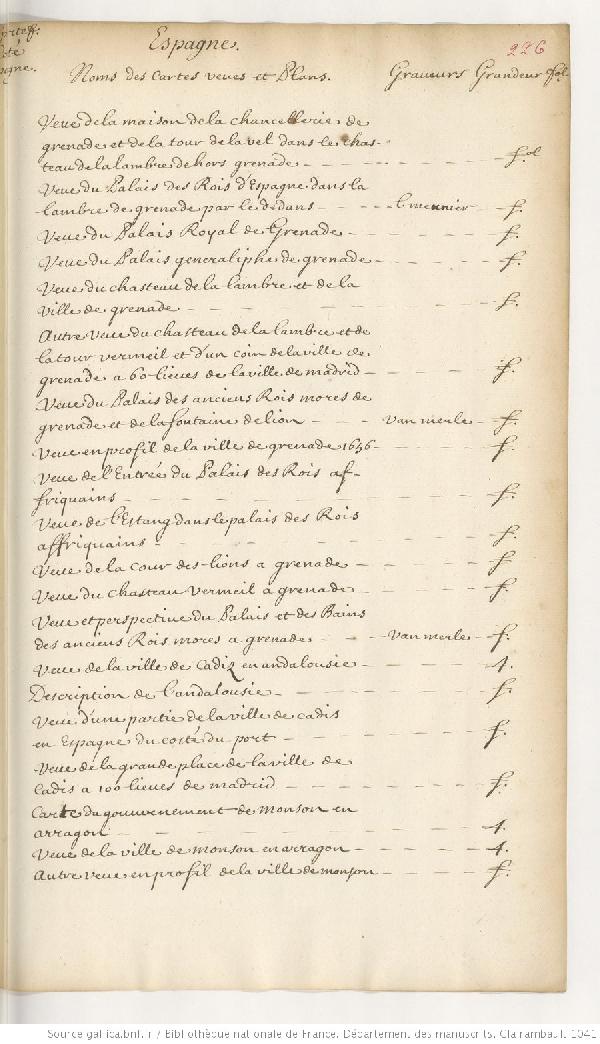 Espagne.
226
Noms des cartes veues et Plans. Graveurs Grandeur fol.
Veue de la maison de la chancellerie de
grenade et de la tour de la vel dans le chas-
teau de la lambre de hors grenade - - - - - - - fol
Veue du Palais des Rois d'Espagne dans la
lambre de grenade par le dedans - - - - Lmeunier - f.
Veue du Palais Royal de Grenade - - - - - f.
Veue du Palais generaliphe de grenade - - - - - f.
Veue du chasteau de la lambre et de la
ville de grenade - - - - - - f.
Autre veue du chasteau de la lambre et de
la tour vermeil et d'un coin de la ville de
grenade a 60 lieues de la ville de madrid - - - - f.
Veue du Palais des anciens Rois mores de
grenade et de la fontaine de lion - - - van merle - f.
Veue en profil de la ville de grenade 1656 - - - - f.
Veue de l'Entrée du Palais des Rois af-
friquains - - - - - - - - f.
Veue de l'Estang dans le palais des Rois
affriquains - - - - - - - f.
Veue de la cour des lions a grenade - - - - - f
Veue du chasteau vermeil a grenade - - - - f.
Veue et perspective du Palais et des Bains
des anciens Rois mores a grenade - - - van merle - f.
Veue de la ville de Cadiz en andalousie - - - - - 4.
Description de l'andalousie - - - - - - f.
Veue d'une partie de la ville de cadis
en Espagne du costé du port - - - - - - f.
Veue de la grande place de la ville de
Cadis a 100 lieues de madrid - - - - - - f.
Carte du gouvernement de monson en
arragon - - - - - - - - 4.
Veue de la ville de monson en arragon - - - - - 4.
Autre veue en profil de la ville de monson - - - - f.
Source gallica.bnf.fr / Bibliothèque nationale de France. Département des manuscrits. Clairambault 1041